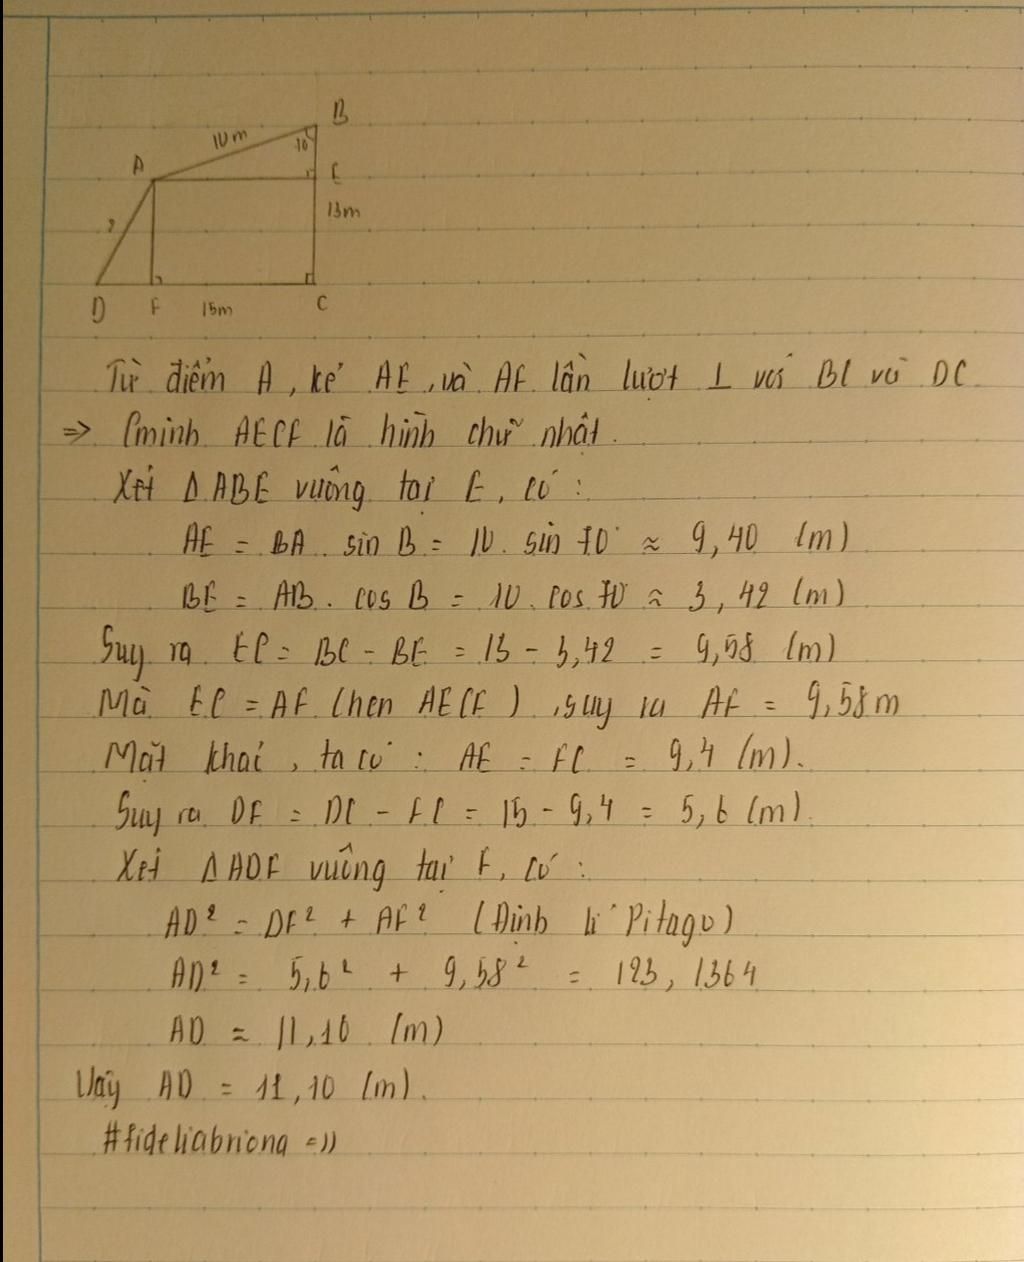 B
10m
70
A
E
13m
?
D
F
15m
C
Từ điểm A, kẻ AE, và AF lần lượt ⊥ với BC và DC
=> Cminh AECF là hình chữ nhật.
Xét ΔABE vuông tại E, có :
AE = BA . sin B = 10. sin 70° ≈ 9,40 (m)
BE = AB. cos B = 10. cos 70 ≈ 3,42 (m)
Suy ra EC = BC - BE = 13 - 3,42 = 9,58 (m)
Mà EC = AF (hcn AECF) , suy ra AF = 9,58m
Mặt khác, ta có : AE = FC = 9,4 (m).
Suy ra DF = DC - FC = 15 - 9,4 = 5,6 (m).
Xét ΔADF vuông tại F, có :
AD² = DF² + AF² (Định lí Pitago)
AD² = 5,6² + 9,58² = 123,1364
AD ≈ 11,10 (m)
Vậy AD = 11,10 (m).
#fideliabriona =))